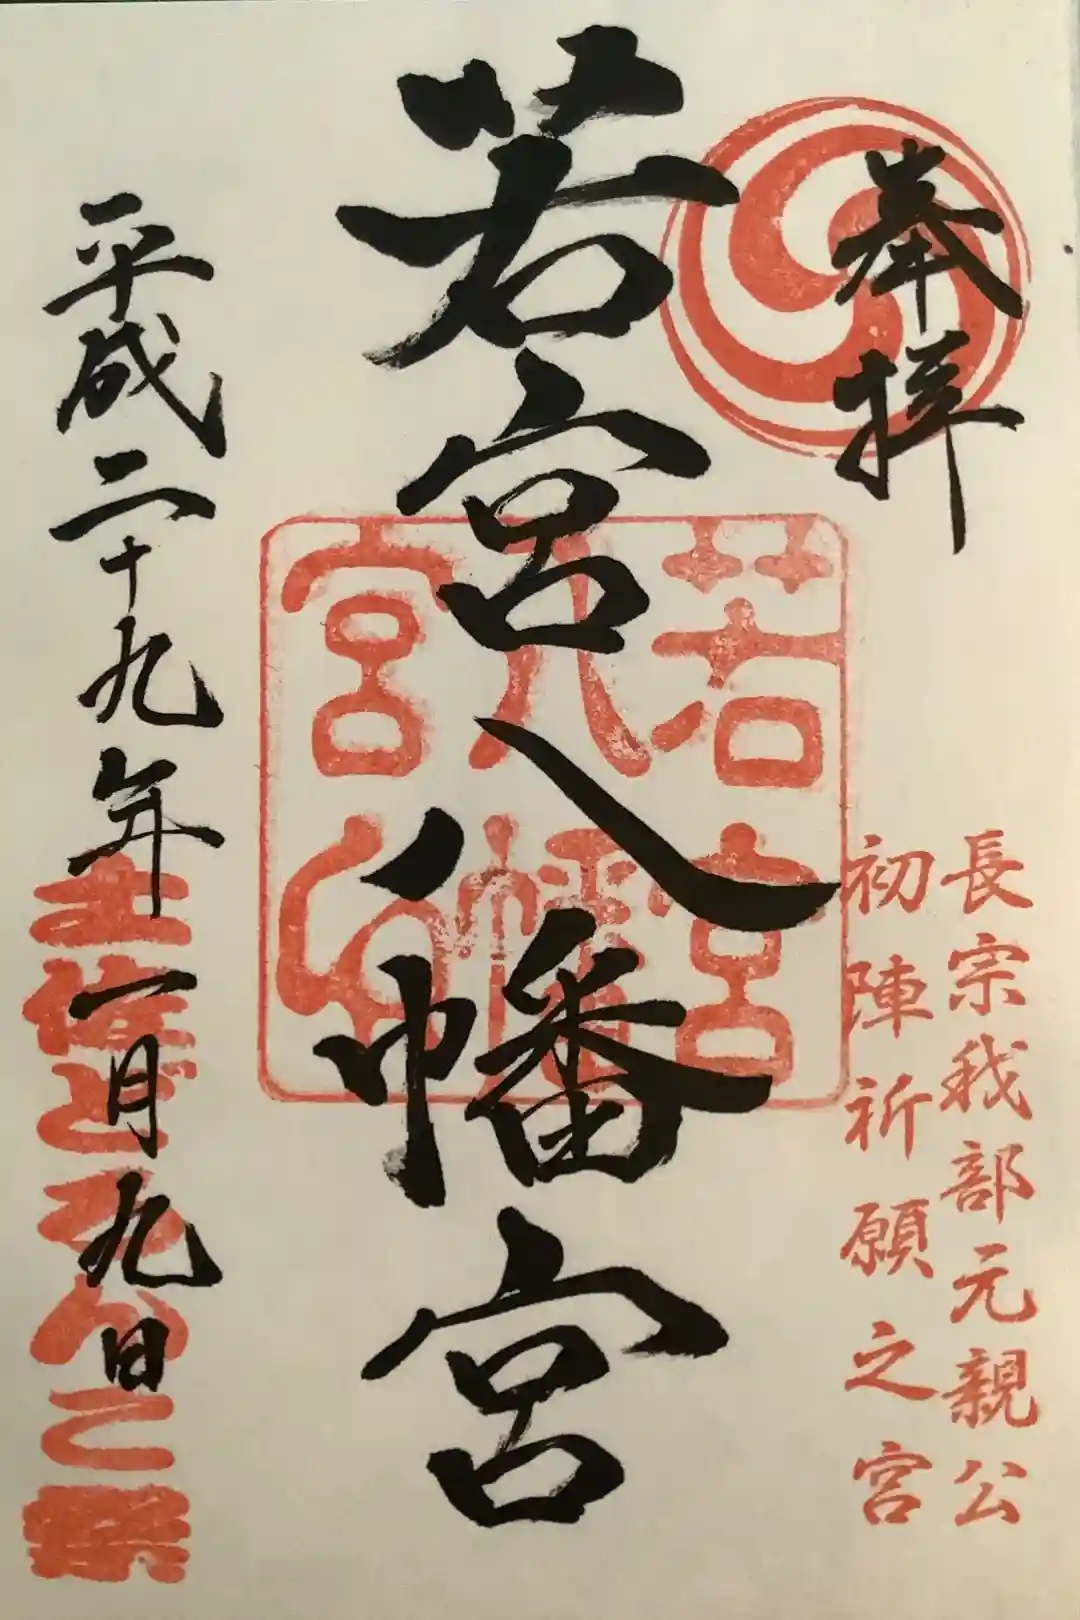 奉拝
長宗我部元親公
初陣祈願之宮
若宮八幡宮
若宮
八幡
宮印
平成二十九年一月九日
土佐どろんこ祭